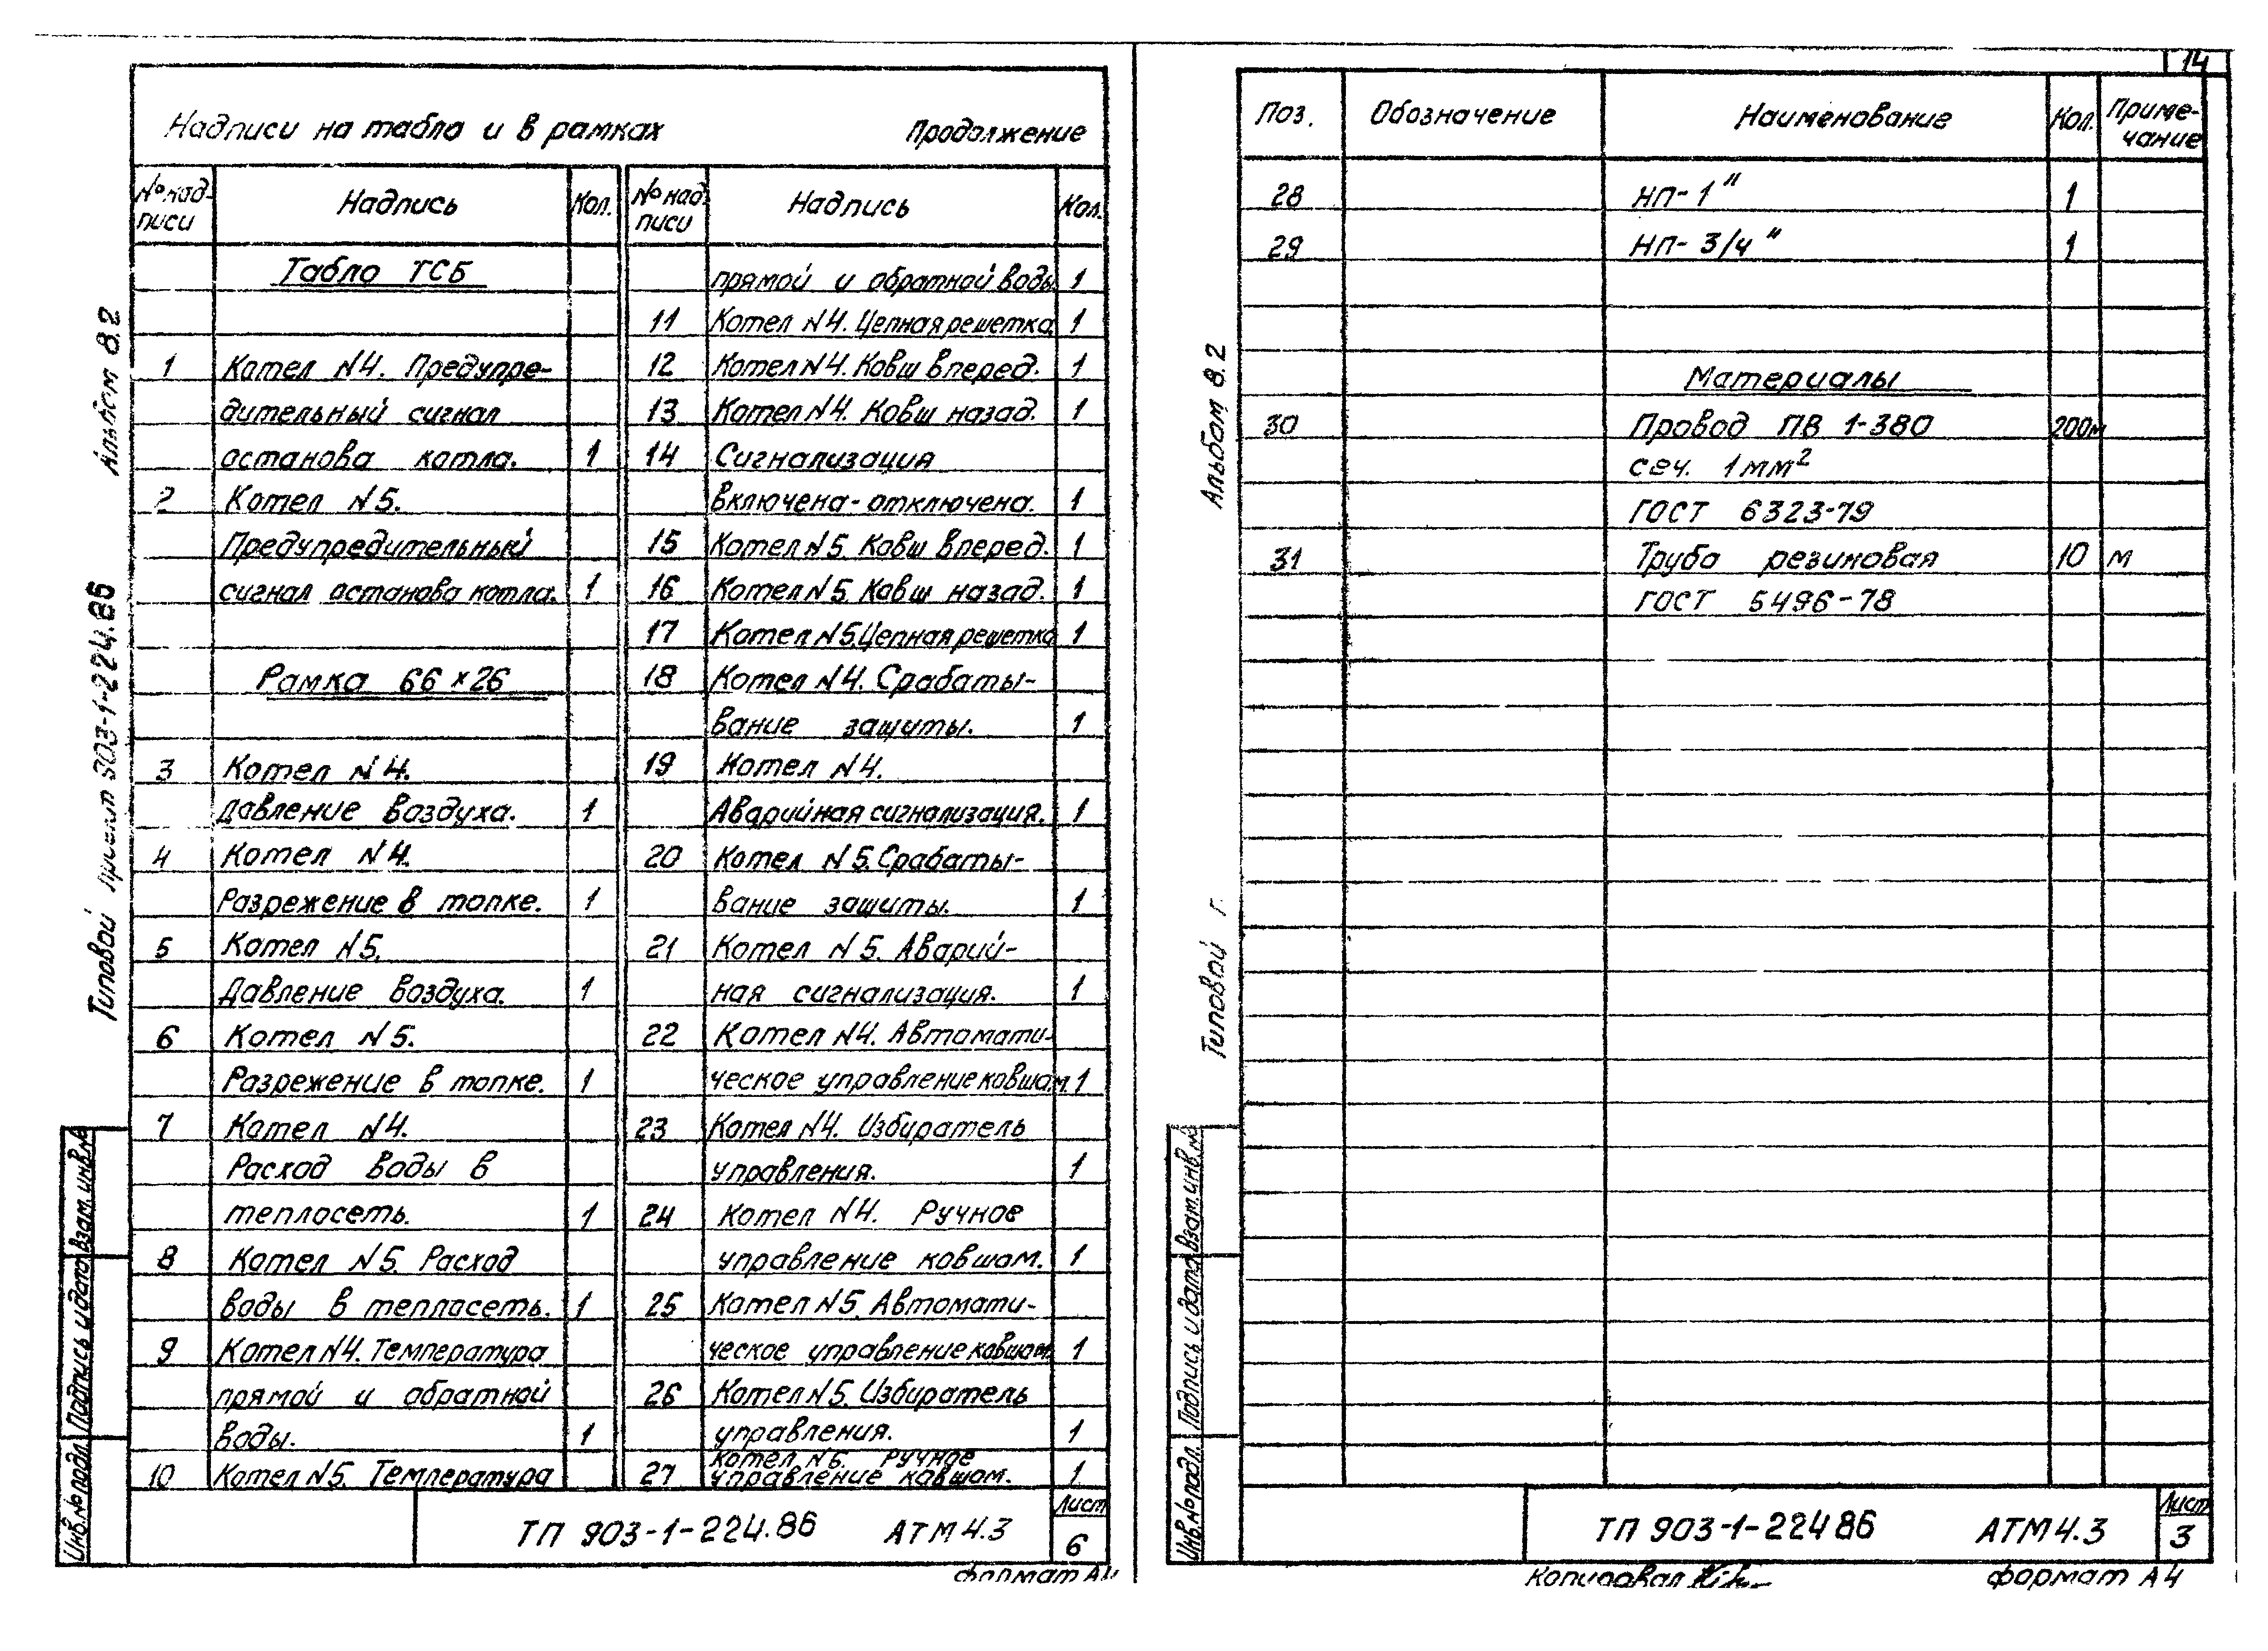 14
Надписи на табло и в рамках Продолжение
№ над- писи Надпись Кол. № над- писи Надпись Кол.
Табло ТСБ
1 Котел N4. Предупре-
дительный сигнал
останова котла. 1
2 Котел N5.
Предупредительный
сигнал останова котла. 1
Рамка 66×26
3 Котел N4.
Давление воздуха. 1
4 Котел N4.
Разрежение в топке. 1
5 Котел N5.
Давление воздуха. 1
6 Котел N5.
Разрежение в топке. 1
7 Котел N4.
Расход воды в
теплосеть. 1
8 Котел N5. Расход
воды в теплосеть. 1
9 Котел N4. Температура
прямой и обратной
воды. 1
10 Котел N5. Температура
прямой и обратной воды 1
11 Котел N4. Цепная решетка 1
12 Котел N4. Ковш вперед. 1
13 Котел N4. Ковш назад. 1
14 Сигнализация
включена-отключена. 1
15 Котел N5. Ковш вперед. 1
16 Котел N5. Ковш назад. 1
17 Котел N5. Цепная решетка 1
18 Котел N4. Срабаты-
вание защиты. 1
19 Котел N4.
Аварийная сигнализация. 1
20 Котел N5. Срабаты-
вание защиты. 1
21 Котел N5. Аварий-
ная сигнализация. 1
22 Котел N4. Автомати-
ческое управление ковшом. 1
23 Котел N4. Избиратель
управления. 1
24 Котел N4. Ручное
управление ковшом. 1
25 Котел N5. Автомати-
ческое управление ковшом 1
26 Котел N5. Избиратель
управления. 1
Котел N6. Ручное
27 управление ковшом. 1
ТП 903-1-224.86 АТМ4.3 Лист 6
формат А4
Типовой проект 903-1-224.86 Альбом 8.2
Инв.№ подл. Подпись и дата Взам.инв.№
Поз. Обозначение Наименование Кол. Приме-
чание
28 НП-1" 1
29 НП-3/4" 1
Материалы
30 Провод ПВ 1-380 200м
сеч. 1мм²
ГОСТ 6323-79
31 Труба резиновая 10 м
ГОСТ 5496-78
ТП 903-1-224 86 АТМ4.3 Лист 3
Копировал формат А4
Типовой Альбом 8.2
Инв.№ подл. Подпись и дата Взам.инв.№